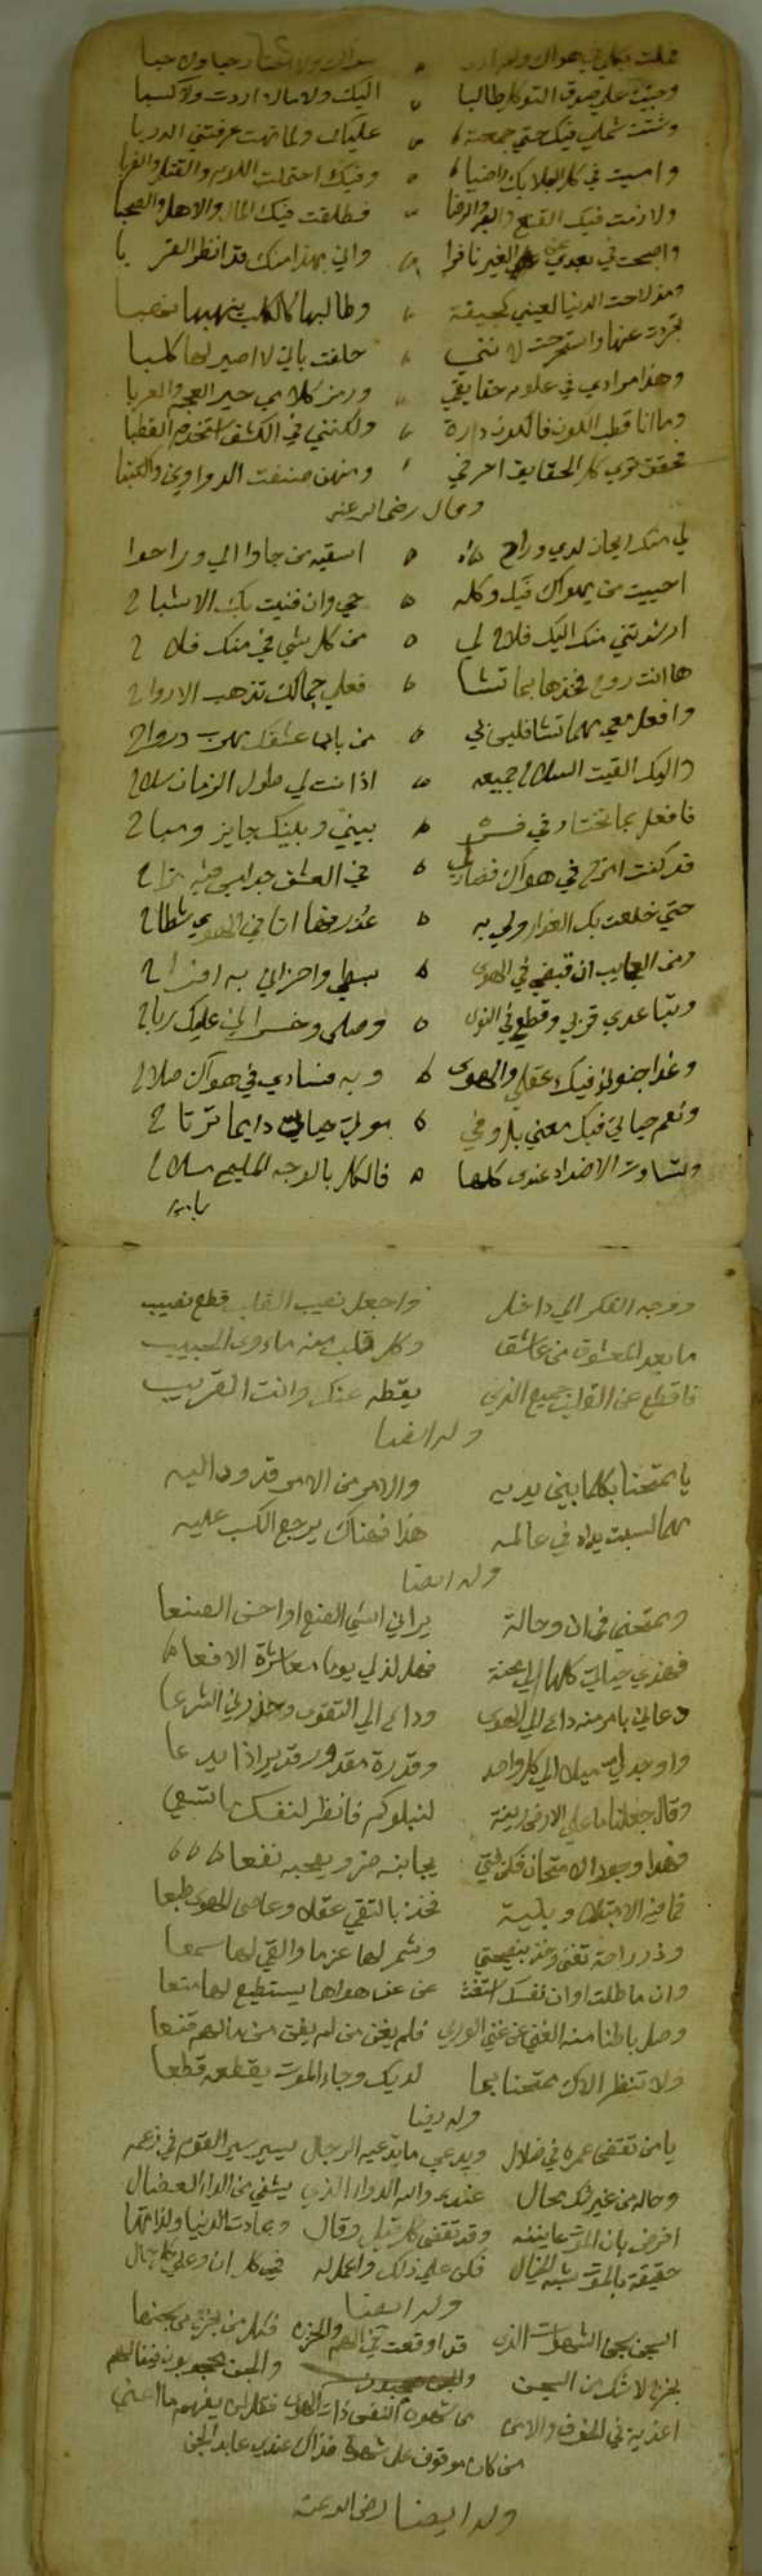 وجيت علي صوق التوكل طالبا ٥ اليك ولا مالا اردت ولا كسبا
وشتت شملي فيك حتي جمعته ٥ عليك ولما تهت عرفتني الدربا
وامسيت في كل البلا بك راضيا ٥ وفيك احتملت اللوم والقتل والضربا
ولازمت فيك والفقر والرضا فطلقت فيك المال والاهل والصحبا
واصبحت في بعدي عن الغير نافرا واني بهذا منك قد انظر القربا
ومذ لاحت الدنيا لعيني كجيفة وطالبها كالكلب ينهبها نهبا
تجردت عنها واسترحت لانني حلفت باني لا اصير لها كلبا
وهذا مرادي في علوم حقايقي ورمز كلامي حير العجم والعربا
وما انا قطب الكون فالكون دارة ولكنني في الكشف استخدم القطبا
تحقق تري كل الحقايق احرفي ومنهن صنفت الدواوين والكتبا
وقال رضي الله عنه
لي منك ريحان لدي وراح ٥ اسقيه من جاوا الي وراحوا
احييت من يهواك فيك وكله ٥ حي وان فنيت بك الاشباح
ارشدتني منك اليك فلاح لي ٥ من كل شي في منك فلاح
ها انت روحي فخذها بما تشا ٥ فعلي جمالك تذهب الارواح
وافعل معي مهما تشا فليس لي ٥ من باب عشقك رواح
واليك القيت السلاح جميعه ٥ اذ انت لي طول الزمان سلاح
فافعل بما تختار في فـ ٥ بيني وبينك جايز ومباح
قد كنت امزح في هواك فصار لي ٥ في العشق جد ليس فيه مزاح
حتي خلعت بك العذار ولي به ٥ عذر فها انا في الهوي شطاح
ومن العجايب ان قبضي في الهوى ٥ بسطي واحزاني به افراح
وتباعدي قربي وقطعي في النوى ٥ وصلي وخسراني عليك رباح
وغدا جنوني فيك عقلي والهوى ٥ وبه فسادي في هواك صلاح
ونعم حياتي فيك معني بل وفي ٥ موتي حياتي دايما ترتاح
وتساوت الاضداد عندي كلها ٥ فالكل بالوجه المليح ملاح
ووجه الفكر الي داخل واجعل نصيب القلب قطع نصيب
ما بعد المعشوق من عاشق وكل قلب منه ماوى الحبيب
فاقطع عن القلب جميع الذي يقطعه عنك وانت القريب
وله ايضا
يا ممتحنا بكلما بين يديه والامر من الامر قد رد اليه
مهما كسبت يداه في عالمه هذا فهناك يرجع الكسب عليه
وله ايضا
وممتحني في ان وحالة يراني اسي الصنع او احسن الصنعا
فهذي حياتي كلها لي محنة فهل لذ لي يوما معاشرة الافعا
دعاني بامر منه داع الي الهوى وداع الي التقوى وحذرني الشرعا
واوجد لي ميلا الي كل واحد وقدرة مقدور قدير اذا يدعا
وقال جعلنا ما علي الارض زينة لنبلوكم فانظر لنفسك ما تسعي
فهذا وجود الامتحان فكن فتي يجانبه ضر ويصحبه نفعا
فما فيه الا مبتلا وبلية فخذ بالتقي عقلا وعاصى الهوى طبعا
وذر راحة تفنى وخذ بنصيحتي وشمر لها عزما والقي لها سمعا
وان ما طلت اوان نفسك استغث عن هواها يستطيع لها منعا
وصل باطنا منه الغني عن غني الوري فلم يغن من لم يفن من مالهم قنعا
ولا تنظر الاك ممتحنا بما لديك وجاء الموت يقطعه قطعا
وله ايضا
يا من تقضى عمره في ضلال ويدعي ما يدعيه الرجال يسير سير القوم في زعمه
وحاله من غير شك محال عندي والله الدواء الذي يشفي من الداء العضال
افرض بان الموت عاينته وقد تقضى كل قيل وقال وعادت الدنيا ولذاتها
حقيقة بالموت شبه الخيال فكن علي ذلك واعمل له في كل ان وعلي كل حال
وله ايضا
السجن سجن الشهوات الذي قد اوقعت في الهم والحزن
يخرج لا شك من السجن
من كان موقوف على شهوة فذاك عندي عابد الجن
وله ايضا رضي الله عنه